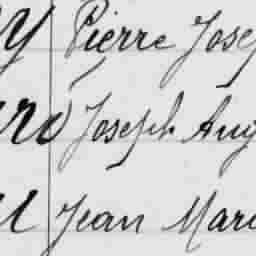 y Pierre Josep
ré Joseph Aug
u Jean Mari